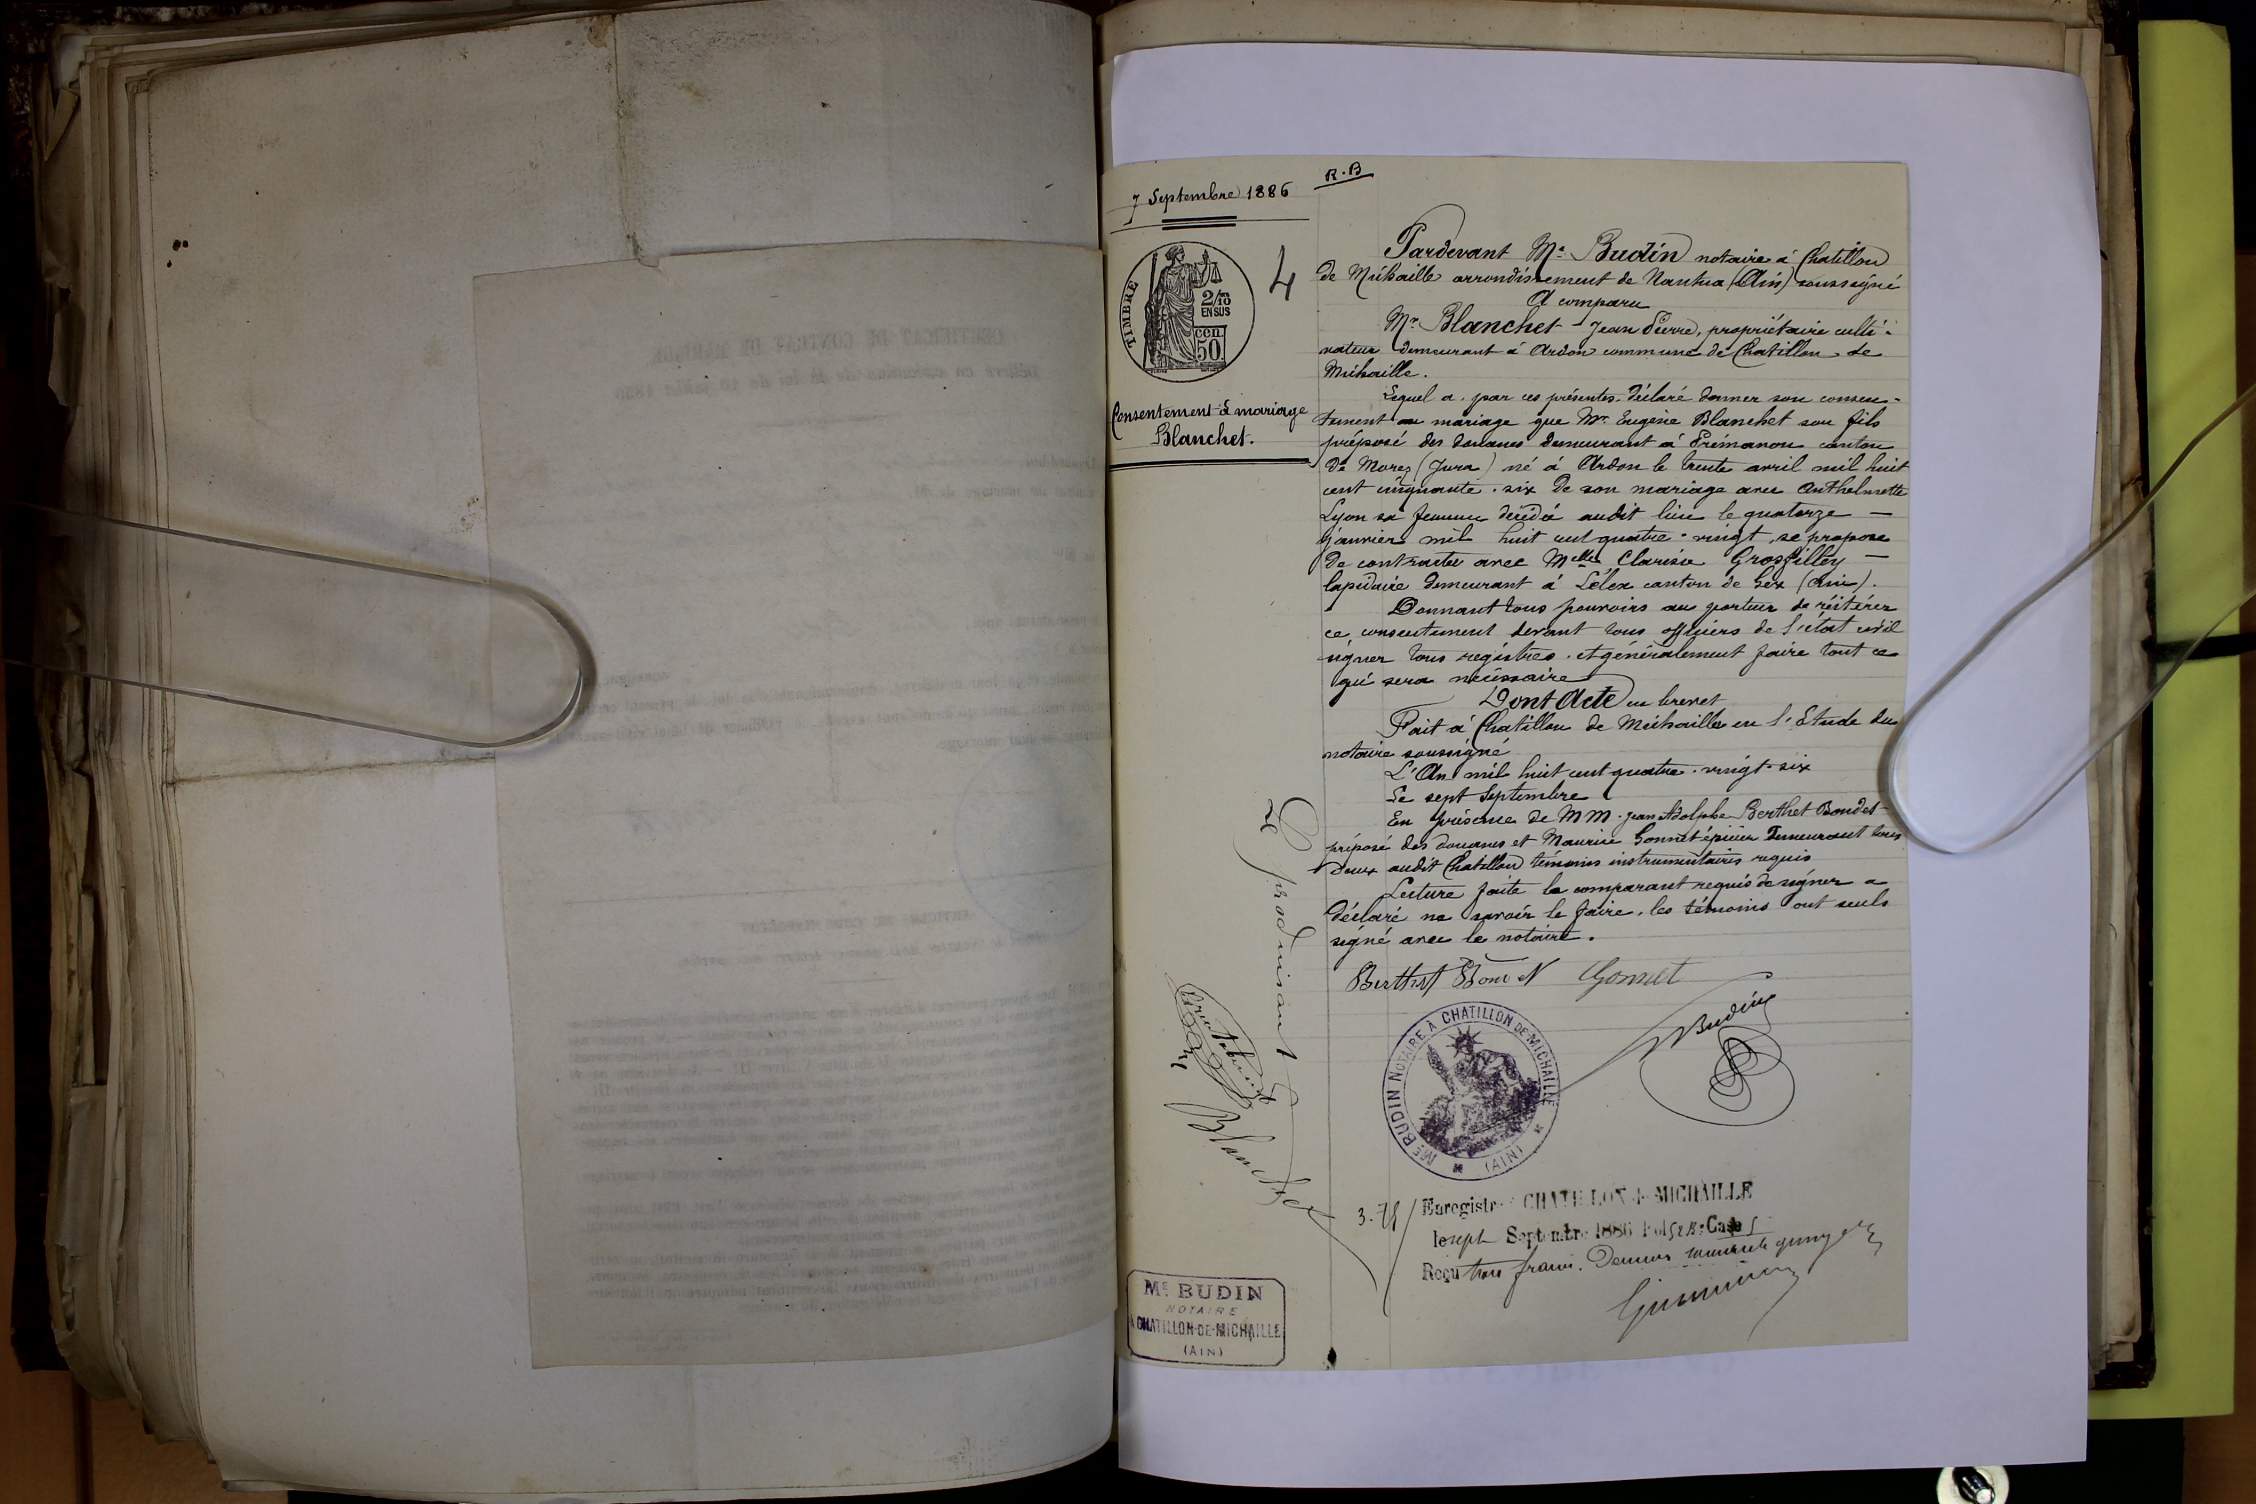 R.B
7 Septembre 1886
4
TIMBRE
2/10
EN SUS
cen.
50
Consentement à mariage
Blanchet.
Pardevant Me Budin notaire à Chatillon
de Michaille arrondissement de Nantua (Ain) soussigné
A comparu
Mr Blanchet Jean Pierre, propriétaire culti-
nateur demeurant à Ardon commune de Chatillon de
Michaille.
Lequel a par ces présentes déclaré donner son consen-
tement au mariage que Mr Eugène Blanchet son fils
préposé des douanes demeurant à Prémanon canton
de Morez (Jura) né à Ardon le trente avril mil huit
cent cinquante-six de son mariage avec Anthelmette
Lyon sa femme décédée audit lieu le quatorze —
janvier mil huit cent quatre-vingt, se propose
de contracter avec Melle Clarisse Grosfilley —
lapidaire demeurant à Lélex canton de Gex (Ain).
Donnant tous pouvoirs au porteur de réitérer
ce consentement devant tous officiers de l'état civil
signer tous registres et généralement faire tout ce
qui sera nécessaire
Dont Acte en brevet
Fait à Chatillon de Michaille en l'Etude du
notaire soussigné
L'An mil huit cent quatre-vingt-six
Le sept Septembre
En présence de MM. Jean Adolphe Berthet Bondet
préposé des douanes et Maurice Gonnet épicier demeurant tous
deux audit Chatillon témoins instrumentaires requis
Lecture faite le comparant requis de signer a
déclaré ne savoir le faire, les témoins ont seuls
signé avec le notaire.
Berthet Bondet Gonnet
Budin
Me BUDIN NOTAIRE À CHATILLON-DE-MICHAILLE
(AIN)
Le produisant
Blanchet
3.75
Enregistré CHATILLON-de-MICHAILLE
le sept Septembre 1886 Fol Case
Reçu trois francs. Decimes soixante quinze
Me BUDIN
NOTAIRE
A CHATILLON-DE-MICHAILLE
(AIN)